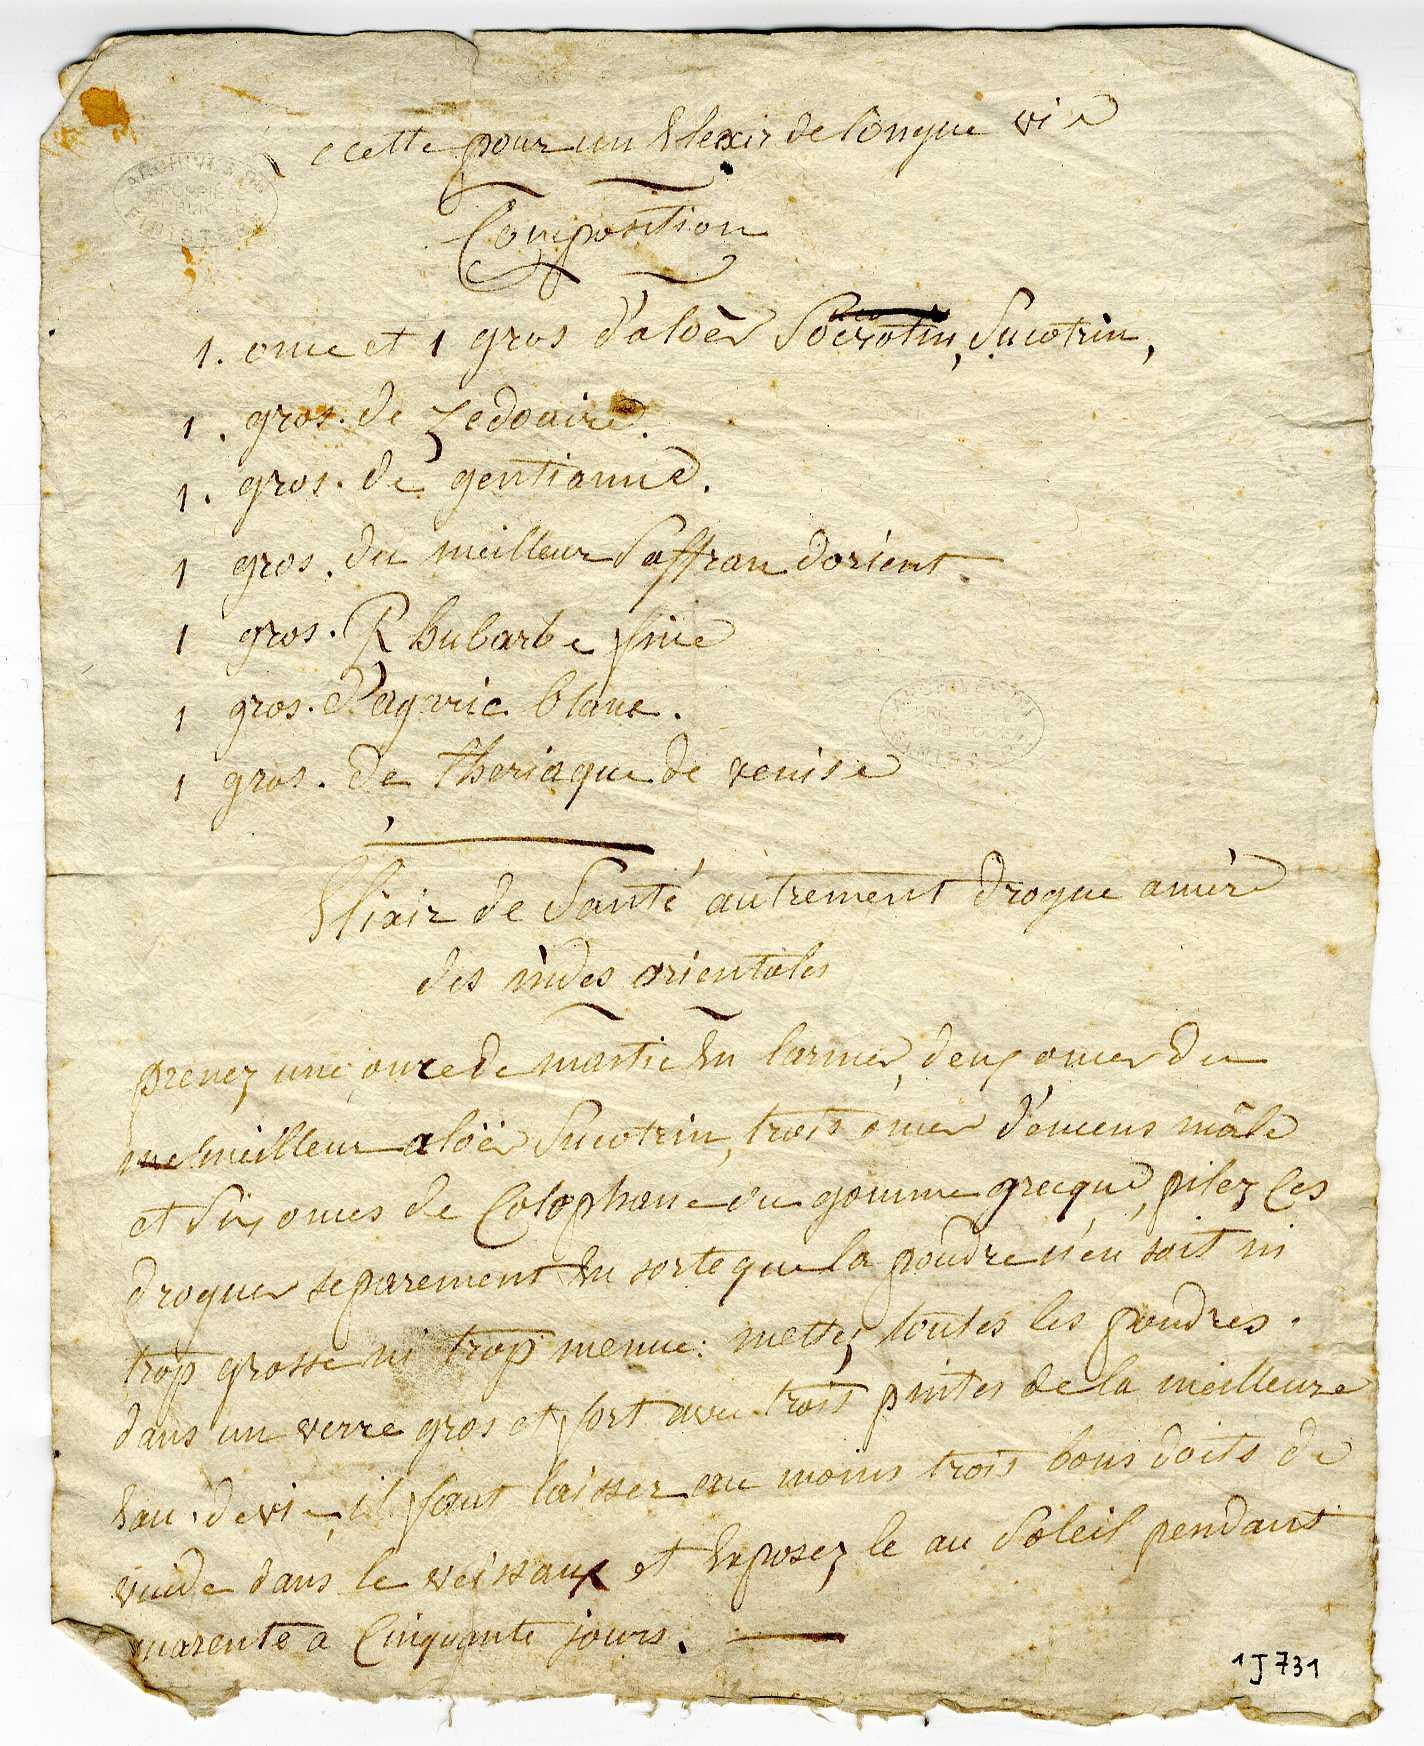 ecette pour un Elexir de longue vie
Composition
1. once et 1 gros d'aloës Socrotin, Sucotrin,
1. gros. de Zedoaire.
1. gros. de gentianne.
1 gros. du meilleur Saffran dorient
1 gros. Rhubarbe fine
1 gros. d'agaric blanc.
1 gros. de theriaque de venise
Elixir de Santé autrement drogue amère
des indes orientales
prenez une once de mastic En larmes, deux onces du
me meilleur aloës Sucotrin, trois onces d'encens mâle
et Six onces de Colophane ou gomme greque, pilez Ces
drogues separement En sorte que la poudre n'en soit ni
trop grosse ni trop menue: mettez toutes les poudres.
dans un verre gros et fort avec trois pintes de la meilleure
Eau. de vie, il faut laisser au moins trois bons doits de
vuide dans le veissaux et Exposez le au Soleil pendant
quarente a Cinquante jours.
1J731
ARCHIVES DU
FINISTERE